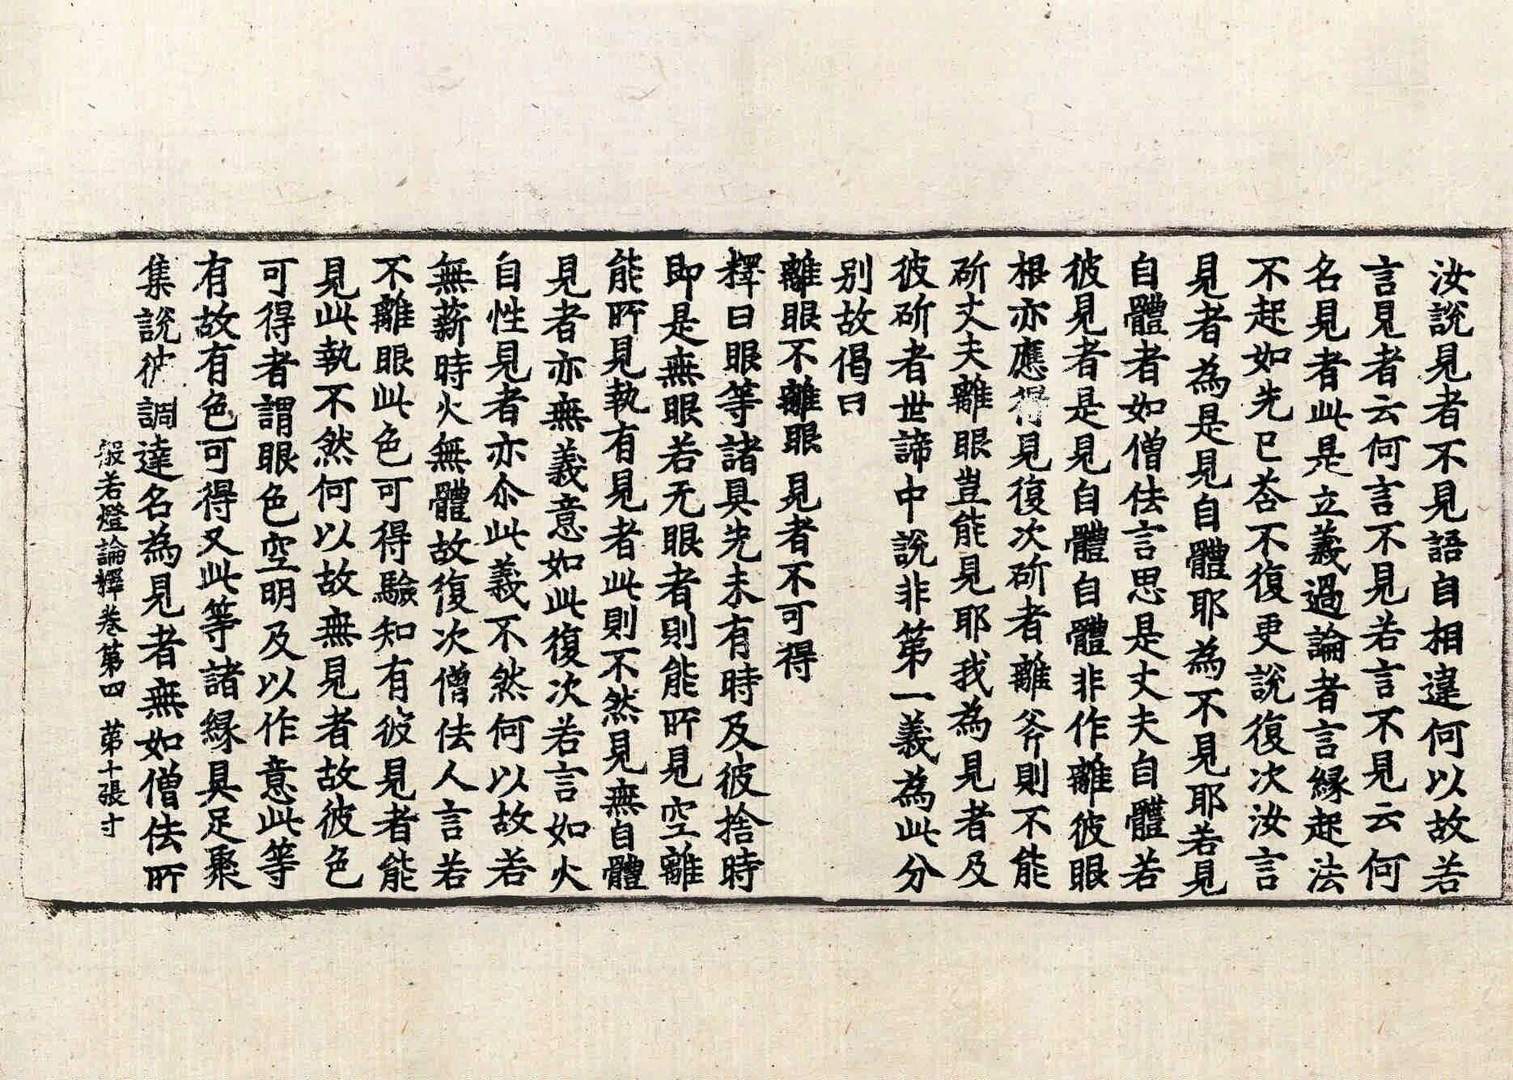 汝說見者不見語自相違何以故若
言見者云何言不見若言不見云何
名見者此是立義過論者言緣起法
不起如先已荅不復更說復次汝言
見者為是見自體耶為不見耶若見
自體者如僧佉言思是丈夫自體若
彼見者是見自體自體非作離彼眼
根亦應得見復次斫者離斧則不能
斫丈夫離眼豈能見耶我為見者及
彼斫者世諦中說非第一義為此分
別故偈曰
離眼不離眼 見者不可得
釋曰眼等諸具先未有時及彼捨時
即是無眼若无眼者則能所見空離
能所見執有見者此則不然見無自體
見者亦無義意如此復次若言如火
自性見者亦尒此義不然何以故若
無薪時火無體故復次僧佉人言若
不離眼此色可得驗知有彼見者能
見此執不然何以故無見者故彼色
可得者謂眼色空明及以作意此等
有故有色可得又此等諸緣具足聚
集說彼調達名為見者無如僧佉所
般若燈論釋卷第四 第十張 寸